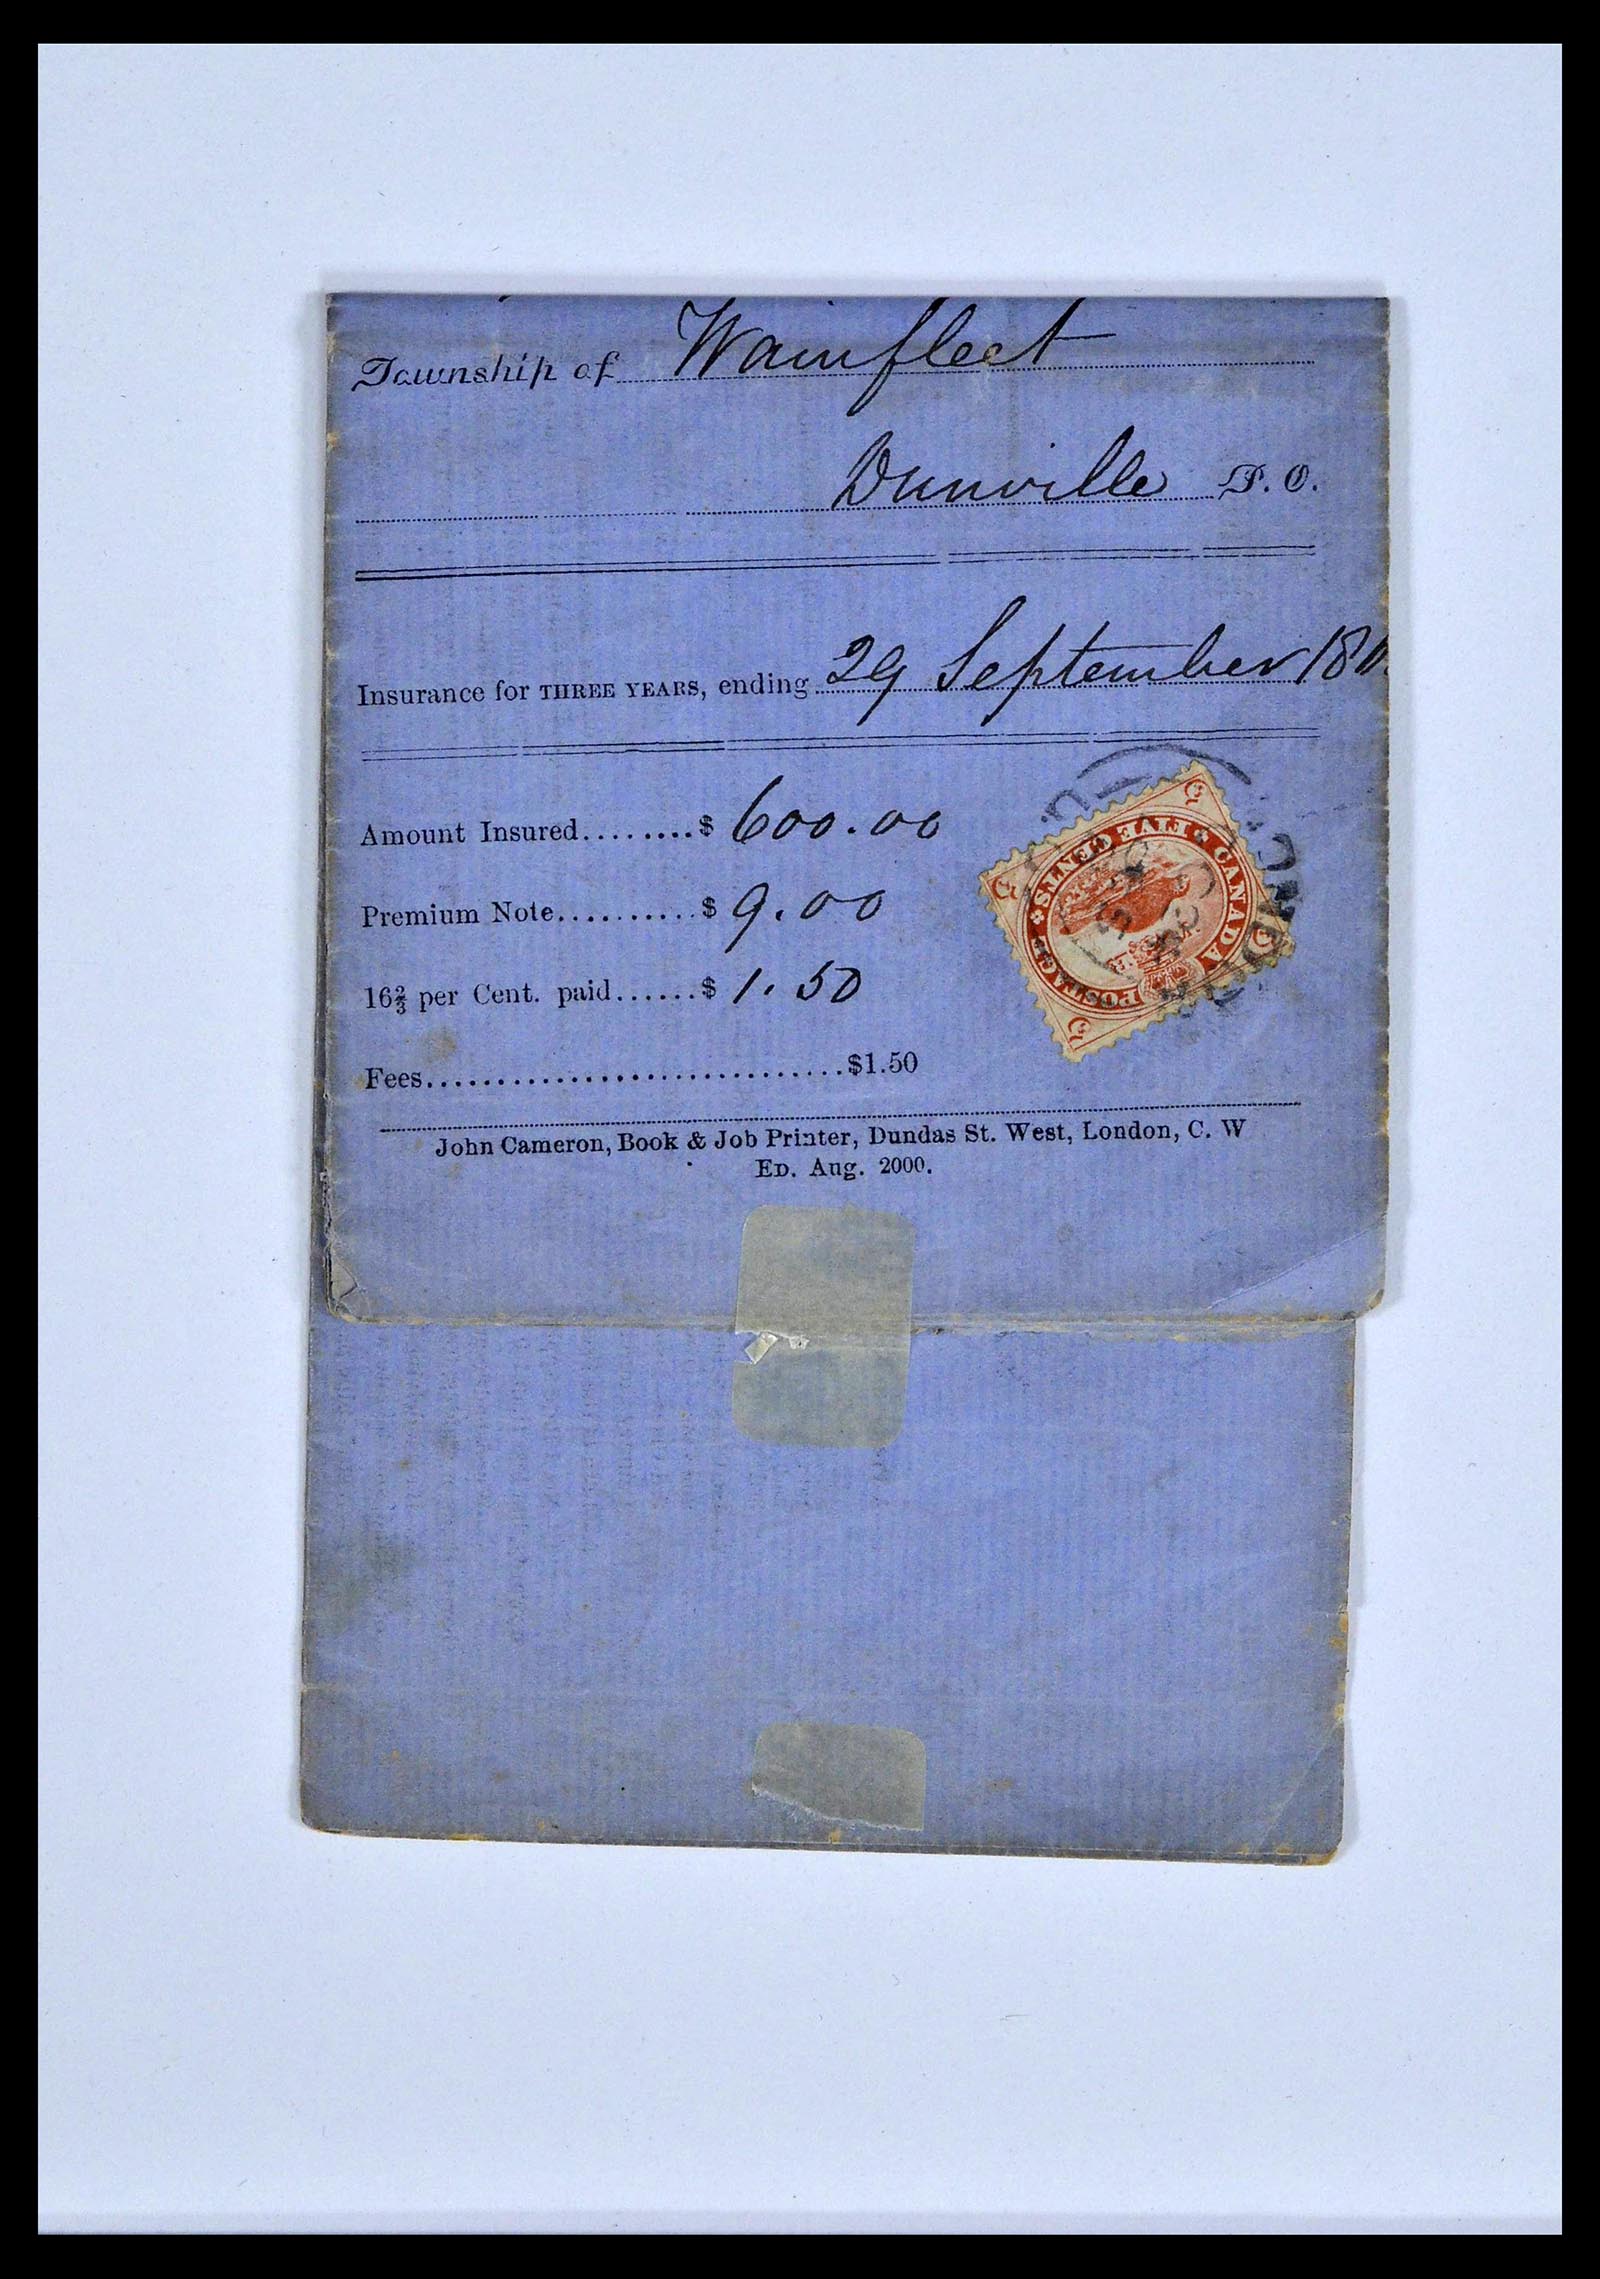 Township of Wainfleet
Dunville P. O.
Insurance for THREE YEARS, ending 29 September
Amount Insured........$ 600.00
Premium Note..........$ 9.00
16⅔ per Cent. paid......$ 1.50
Fees..............................$1.50
CANADA POSTAGE
FIVE CENTS
5
5
5
5
John Cameron, Book & Job Printer, Dundas St. West, London, C. W
ED. Aug. 2000.